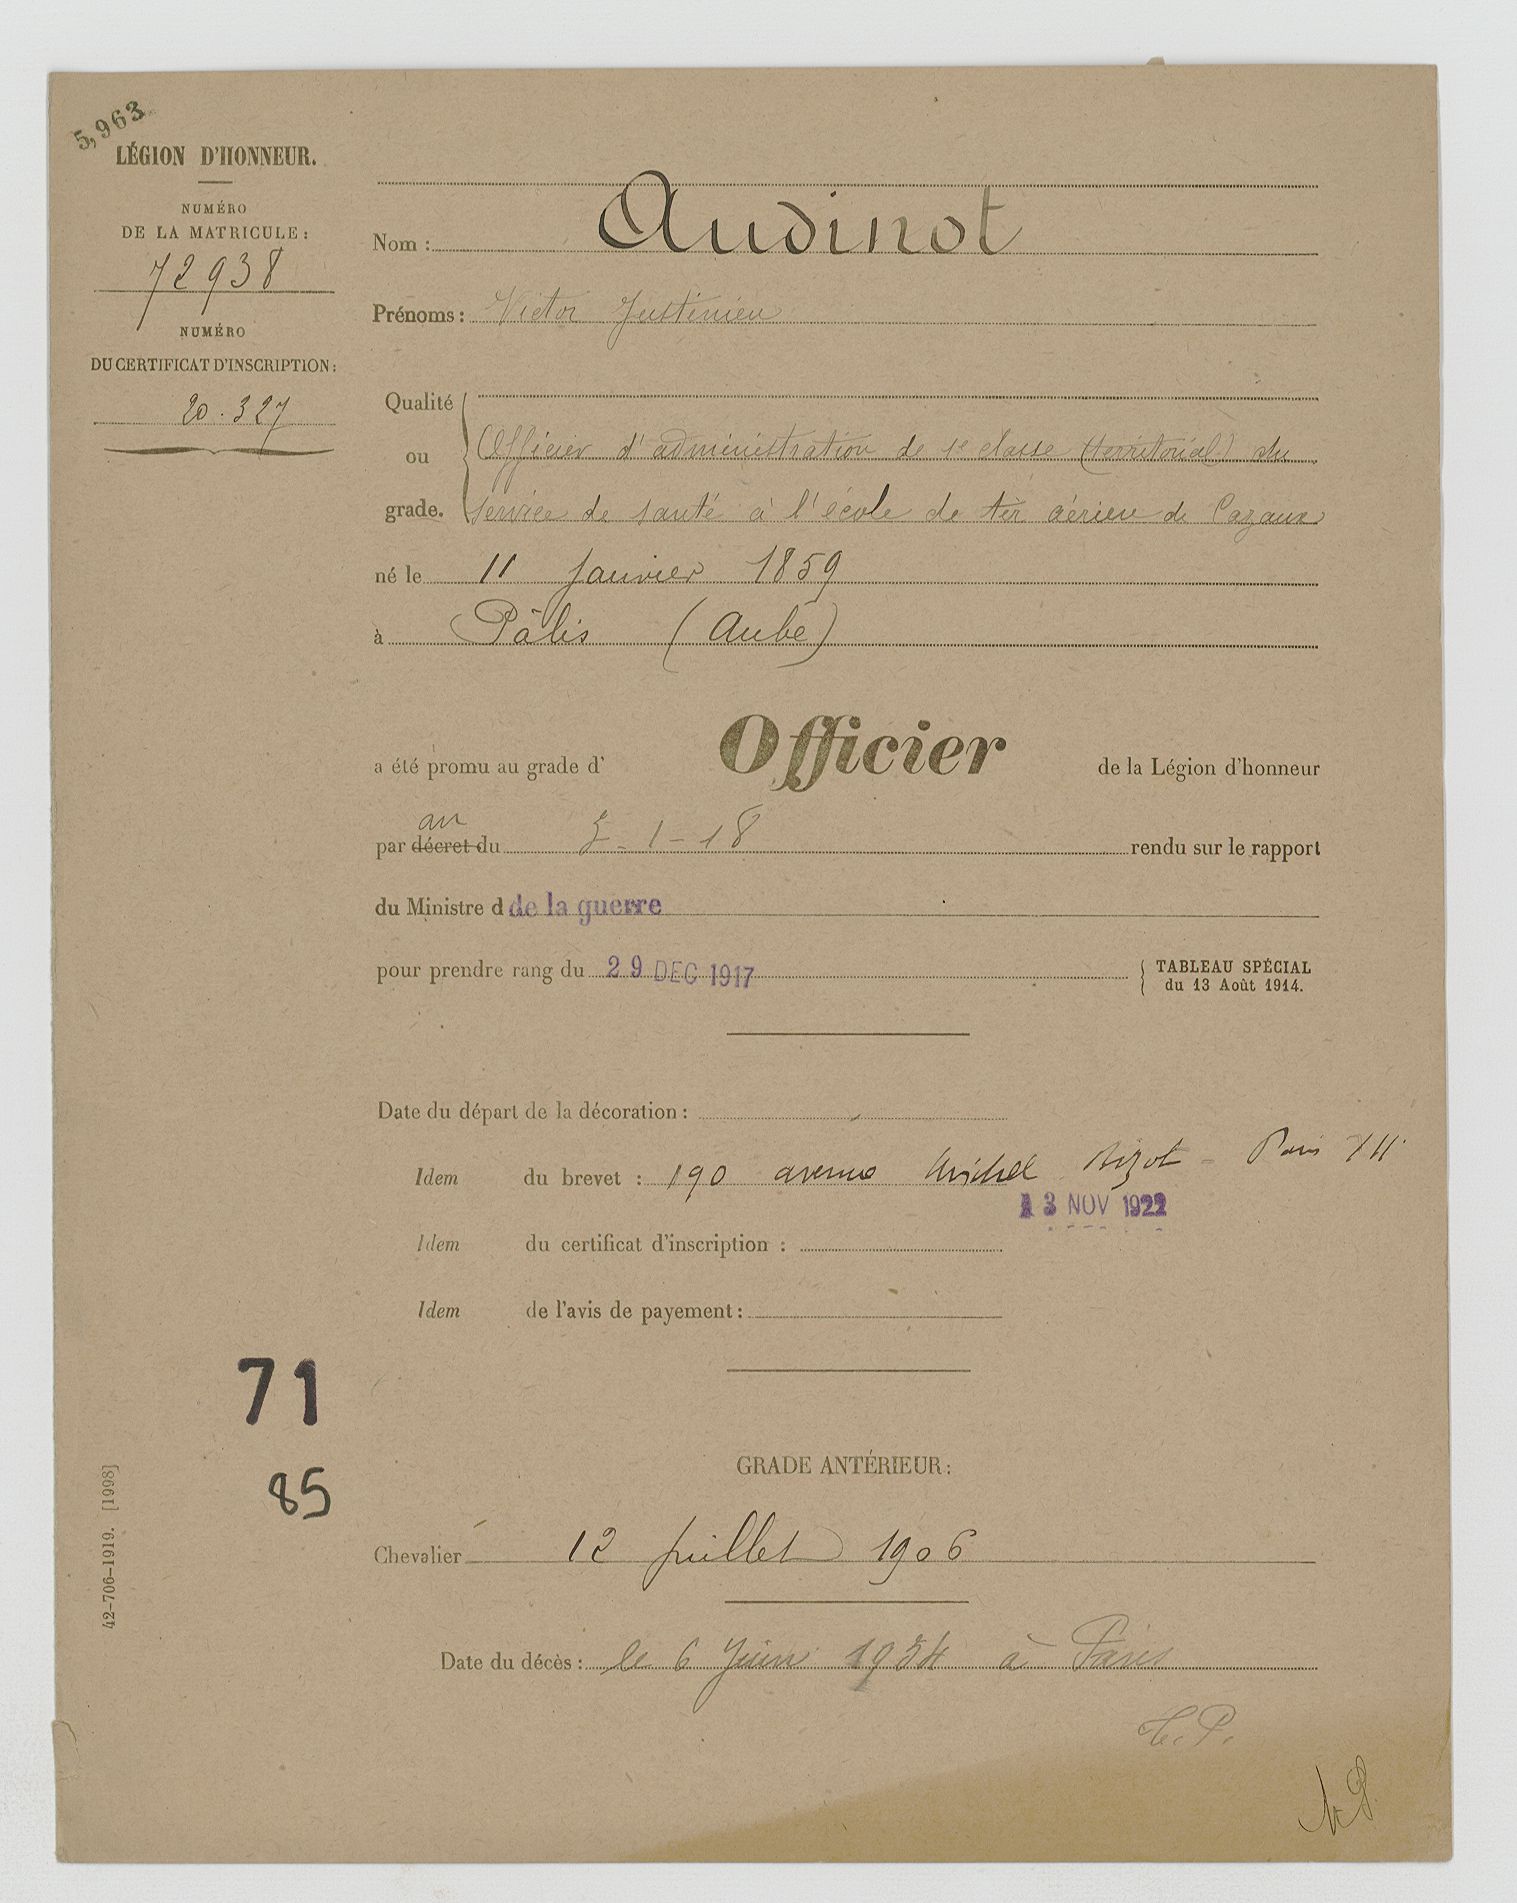 5,963
LÉGION D'HONNEUR.
NUMÉRO
DE LA MATRICULE :
72938
NUMÉRO
DU CERTIFICAT D'INSCRIPTION :
20.327
Nom : Audinot
Prénoms : Victor Justinien
Qualité
ou
grade.
Officier d'administration de 1e classe (territorial) du
service de santé à l'école de tir aérien de Cazaux
né le 11 Janvier 1859
à Pâlis (Aube)
a été promu au grade d' Officier de la Légion d'honneur
par décret du 3-1-18 rendu sur le rapport
du Ministre d de la guerre
pour prendre rang du 29 DEC 1917
TABLEAU SPÉCIAL
du 13 Août 1914.
Date du départ de la décoration :
Idem du brevet : 190 avenue Michel Bizot - Paris XII
13 NOV 1922
Idem du certificat d'inscription :
Idem de l'avis de payement :
71
85
GRADE ANTÉRIEUR :
Chevalier 12 juillet 1906
Date du décès : le 6 Juin 1934 à Paris
42-706-1919. [1998]